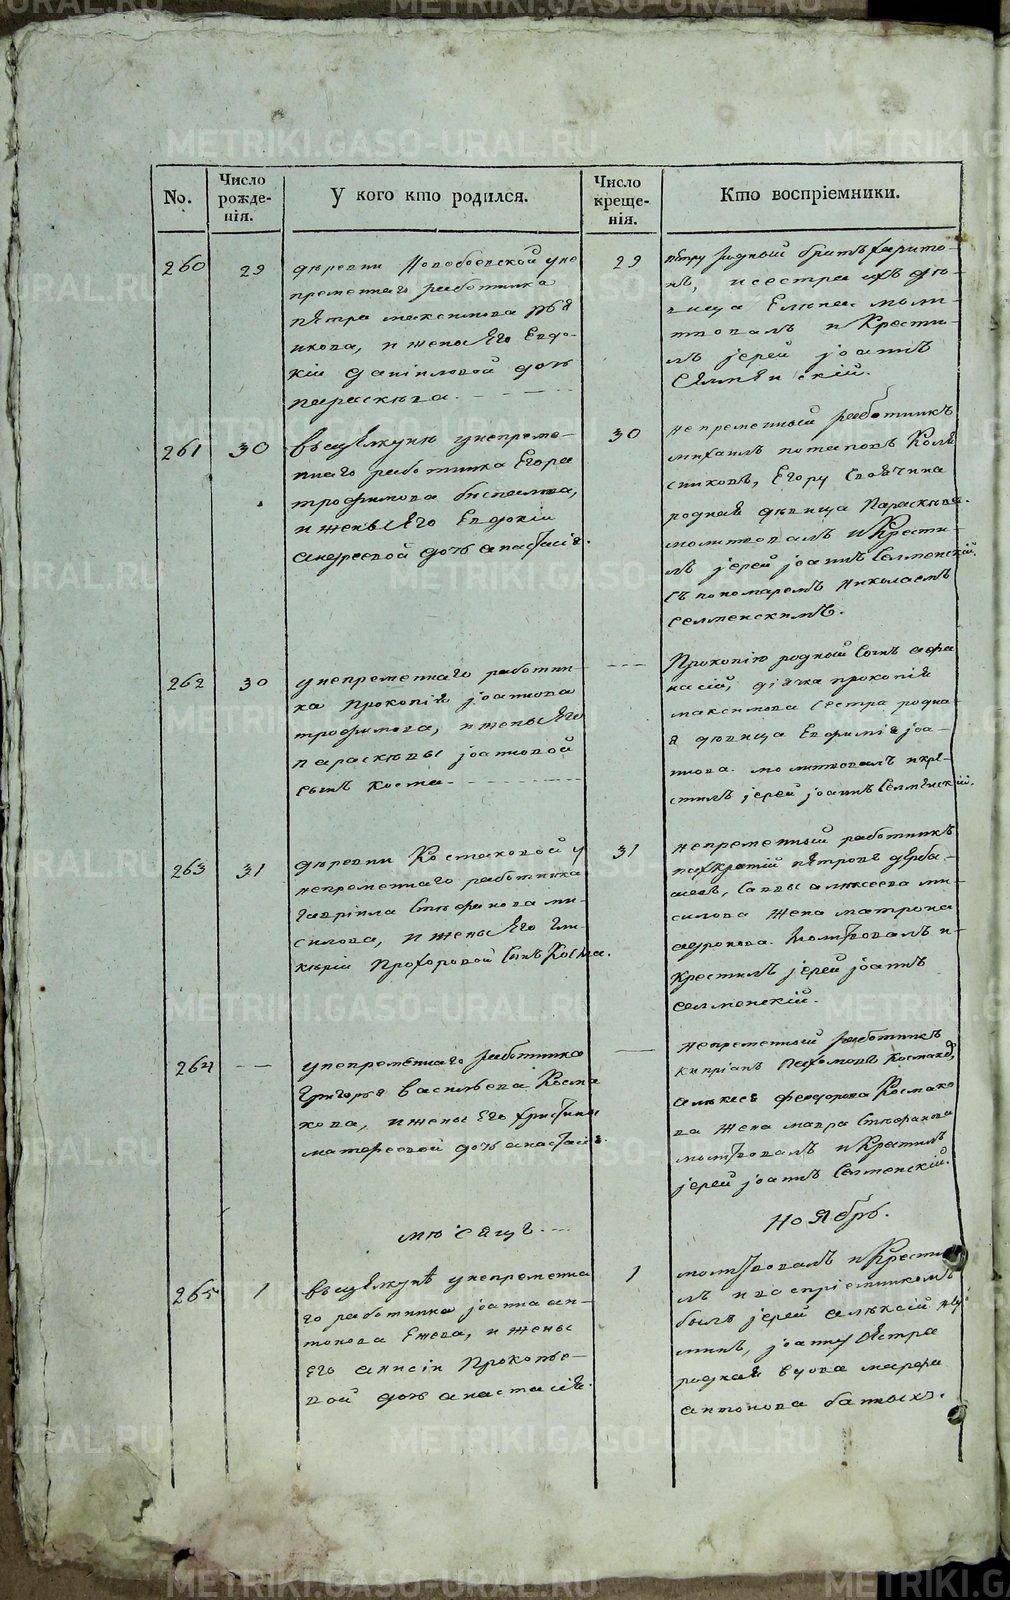 No.
Число рожде-нія.
У кого кто родился.
Число креще-нія.
Кто воспріемники.
260
29
деревни Новобоевской у не
пременнаго работника
пѣтра максимова
икова, и жены Его Евдо-
кіи даніиловой дочь
параскѣва.
29
пѣтру родный братъ харито-
нъ, и сестра ихъ дѣ-
вица Елена. моли-
твовалъ и Крести-
лъ іерей іоаннъ
Селменскій.
261
30
въ у непреме-
ннаго работника Егора
трофимова
и жены Его Евдокіи
андреевой дочь анастасія.
30
непременный работникъ
михаилъ потаповъ Коле
сниковъ, Егору Своячина
родная дѣвица Параскева.
молитвовалъ и Крести-
лъ іерей іоаннъ Селменскій.
Съ пономаремъ николаемъ
селменскимъ.
262
30
у непременнаго работни-
ка прокопія іоаннова
трофимова, и жены Его
параскевы іоанновой
сынъ косма.
Прокопію родной Сынъ афа
насій, дьячка прокопія
максимова Сестра родна-
я дѣвица Евфимія іоа-
ннова. молитвовалъ и кре-
стилъ іерей іоаннъ Селменскій.
263
31
деревни Костаковой у
непременнаго работника
гавріила Стефанова ми-
силова, и жены Его гли-
керіи Прохоровой Сынъ Косма.
31
непременный работникъ
панкратій пѣтровъ
Саввы алексеева ми-
силова жена матрона
молитвовалъ и
крестилъ іерей іоаннъ
селменскій.
264
у непременнаго работника
Григорья васильева Косма
кова, и жены Его христины
матфеевой дочь анастасія.
непременный работникъ
кипріанъ Пахомовъ Космаковъ,
алексея феодорова Космако
ва жена мавра Стефанова
молитвовалъ и Крестилъ
іерей іоаннъ Селменскій.
мѣсяцъ.
ноябрь.
265
1
въ у непременна
го работника іоанна ан-
тонова Ежева, и жены
его анисіи Прокопье-
вой дочь анастасія.
1
молитвовалъ и Крести
лъ и воспріемникомъ
былъ іерей алексій
іоанну сестра
родная вдова марфа
антонова
METRIKI.GASO-URAL.RU